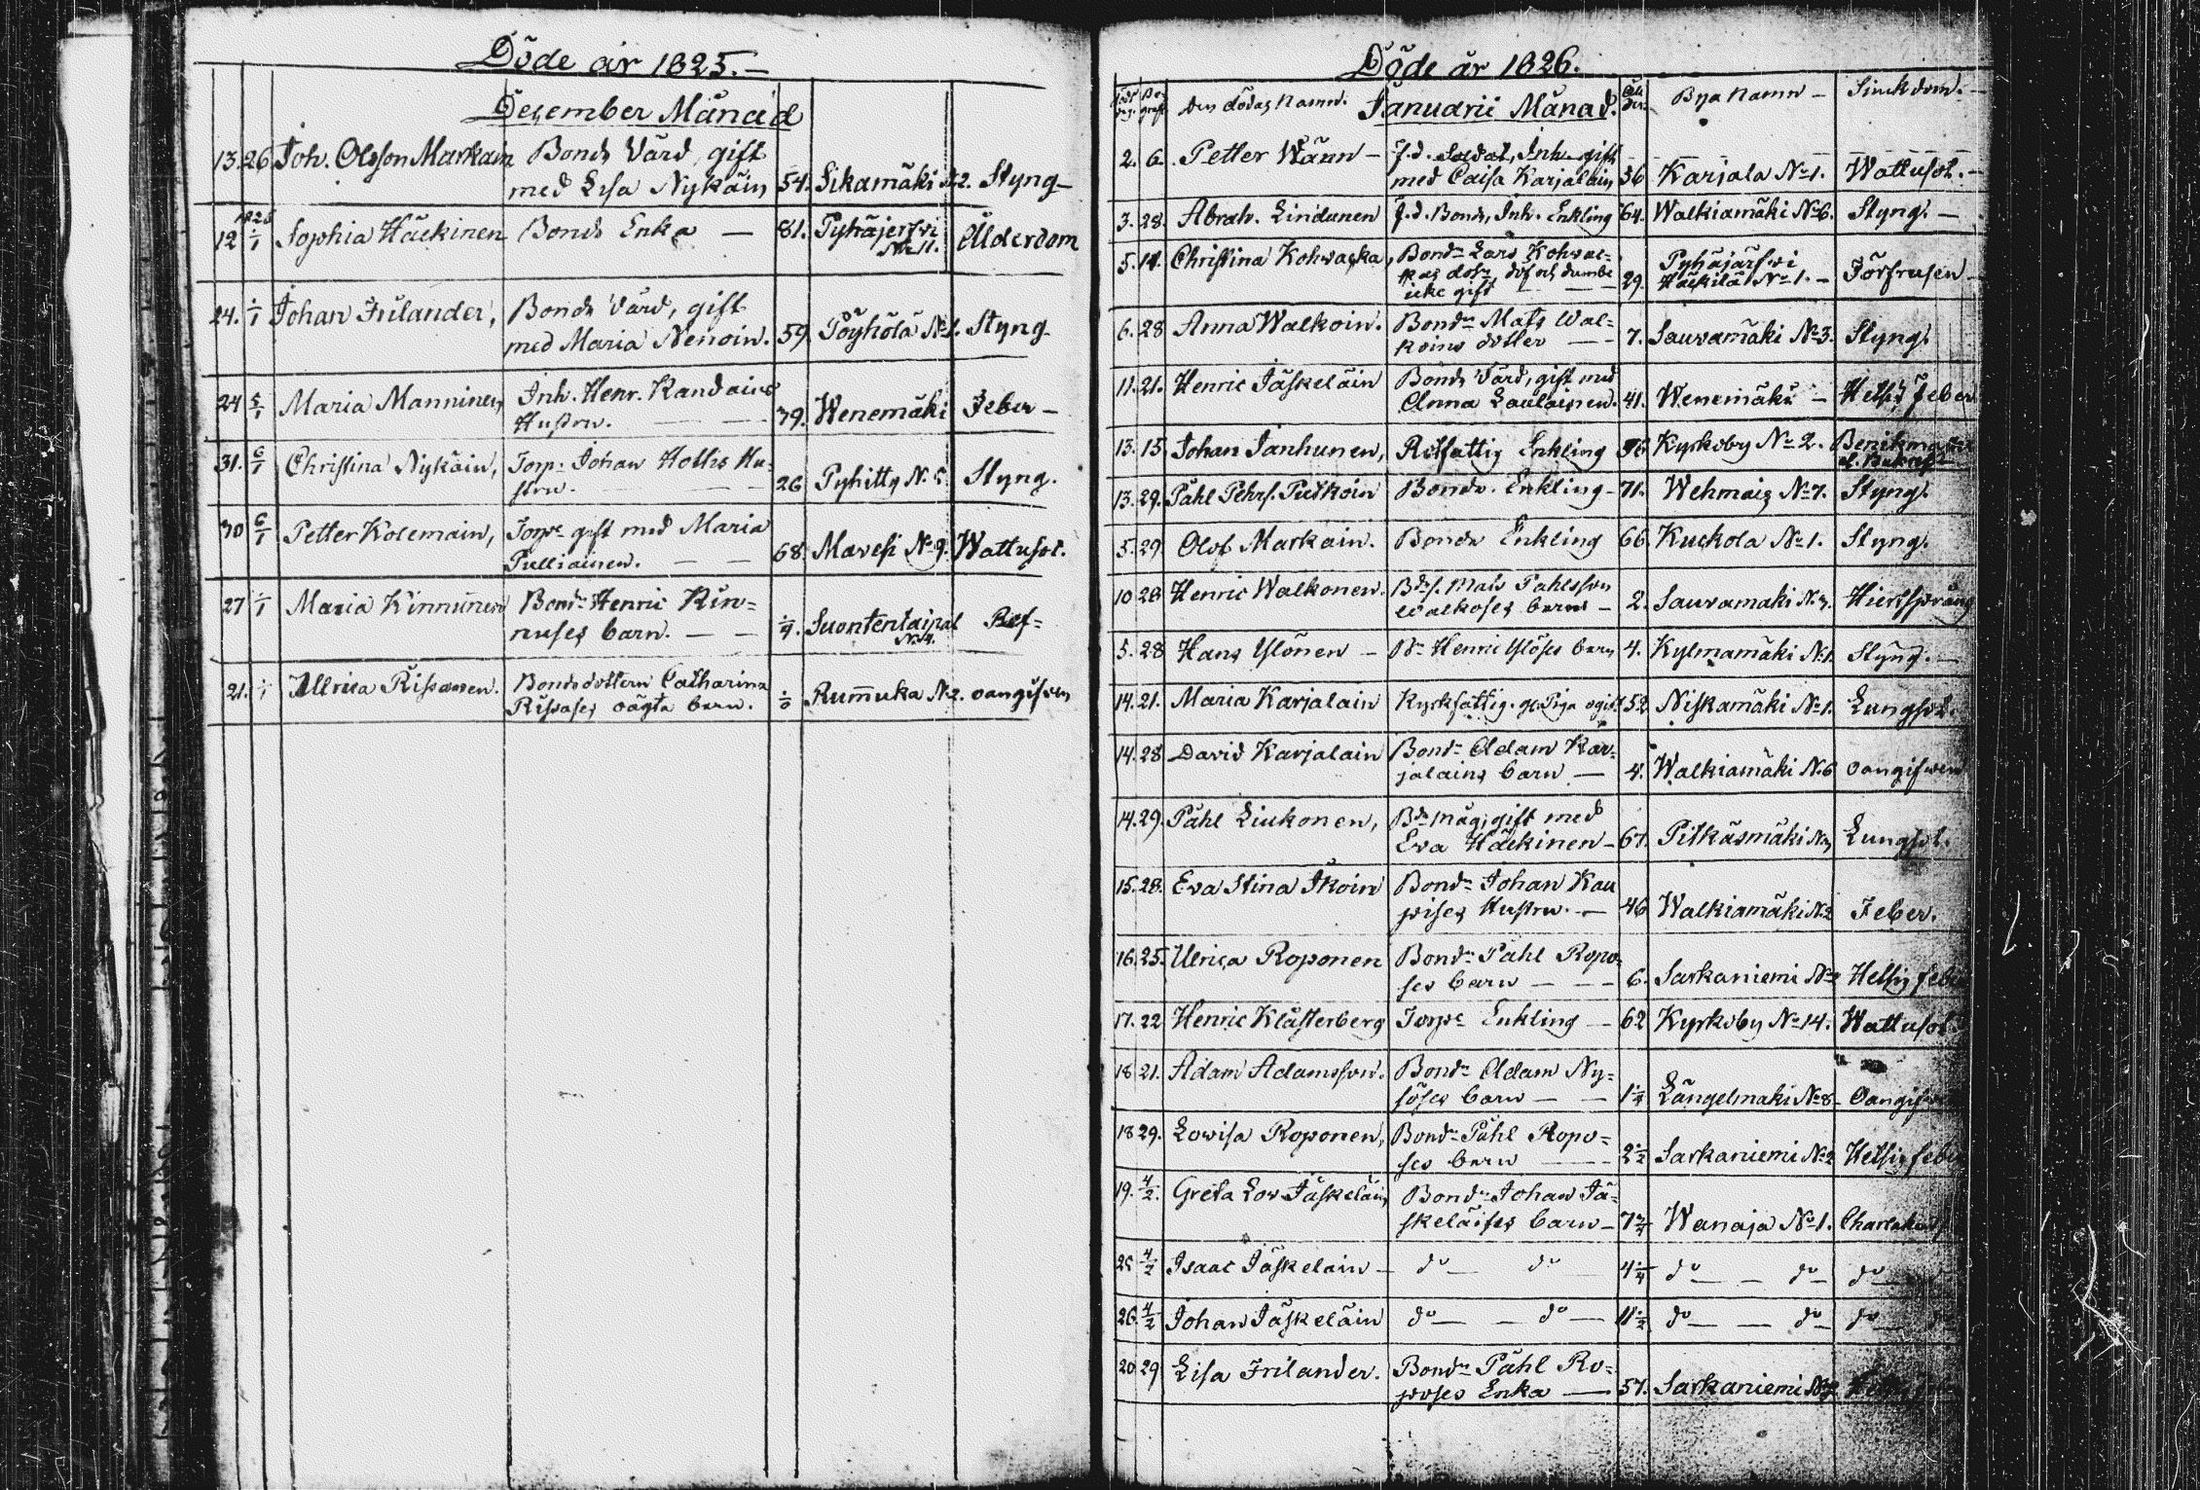 Döde år 1825.—
December Månad
13. 26. Joh. Olsson Markain Bond. Värd, gift
med Lisa Nykäin 54. Sikamäki N. 2. Styng—
1826
12 1/1 Sophia Häckinen Bond. Enka — 81. Pyhäjerfvi Ålderdom
N. 11.
24. 1/1 Johan Frilander, Bond. Värd, gift
med Maria Nenoin. 59. Töyhölä N. 1. Styng—
24 5/1 Maria Manninen, Inh. Henr. Kandaines
Hustru. — — 39. Wenemäki Feber —
31. 6/1 Christina Nykäin, Torp. Johan Hollis Hu=
stru. — 26 Pyhitty N. 5. Styng.
30 6/1 Petter Kolemain, Torp. gift med Maria
Pulliainen. — — 68. Mavesi N. 9. Wattusot.
27 1/1 Maria Kinnunen Bond. Henric Kin=
nuses barn. — — 1/4. Suontentaipal Ref=
N. 4.
21. 1/1 Ullrica Rissanen. Bondedottern Catharina
Rissases oägta barn. Rummuka N. 2. oangifven
Döde år 1826.
Den dödas Namn. Januarii Månad. Ålder. Bya Namn — Siuckdom. —
2. 6. Petter Wänn — f.d. Soldat, Inh. gift
med Caisa Karjalain 56 Karjala N. 1. Wattusot. —
3. 28. Abrah. Lindunen f.d. Bonde, Inh. Enkling 64. Walkiamäki N. 6. Styng. —
5. 14. Christina Kohwacka, Bond. Lars Kohvac=
kas dotr, döf och dumbe Pyhäjärfvi
icke gift — — 29. Häckilä N. 1. — Förfrusen —
6. 28 Anna Walkoin. Bond. Mats Wal=
koins dotter — — 7. Sauvamäki N. 3. Styng.
11. 21. Henric Jäskeläin Bond. Värd, gift med
Anna Laulainen. 41. Wenemäki — Hetsig feber
13. 15. Johan Janhunen, Rotfattig Enkling 76 Kyrkoby N. 2.
13. 29. Påhl Pehrs. Putkoin Bonde. Enkling — 71. Wehmais N. 7. Styng.
5. 29. Olof Markain. Bonde Enkling 66. Kuckola N. 1. Styng.
10 28 Henric Walkonen. Bds. Mats Pahlsson
Walkoses barn — 2. Sauvamaki N. 3. Hiertsprång
5. 28 Hans Ylönen — Bd. Henric Ylöses barn 4. Kylmamäki N. 1. Styng. —
14. 21. Maria Karjalain Kyrkfattig. Piga ogift 52 Niskamäki N. 1. Lungsot.
14. 28 David Karjalain Bond. Adam Kar=
jalains barn — 4. Walkiamäki N. 6 oangifven
14. 29. Påhl Liukonen, Bd. måg, gift med
Eva Häckinen — 67. Pitkäsmäki N. Lungsot.
15. 28. Eva Stina Ikoin Bond. Johan Kau
pises Hustru. — 46 Walkiamäki N. 2 Feber.
16. 25. Ulrica Roponen Bond. Påhl Ropo=
ses barn — — 6. Sarkaniemi N. 2 Hetsig feber
17. 22 Henric Klåsterberg Torp. Enkling — 62 Kyrkoby N. 14. Wattusot.
18 21. Adam Adamsson. Bond. Adam Ny=
söses barn — — 1 1/4 Längelmaki N. 8 — Oangifven
18 29. Lowisa Roponen, Bond. Påhl Ropo=
ses barn — 2 1/2 Sarkaniemi N. 2 Hetsig feber
19. 4/2. Greta Lov. Jäskeläin, Bond. Johan Jä=
skeläises barn — 7 3/4 Wanaja N. 1. Charlakan
25 4/2 Isaac Jäskelain — do — do — 4 1/4 do — — do — do —
26. 4/2 Johan Jäskeläin do — — do — 11 1/2 do — — do — do — do
20 29 Lisa Frilander. Bond. Påhl Ro=
poses Enka — 57. Sarkaniemi N. 2